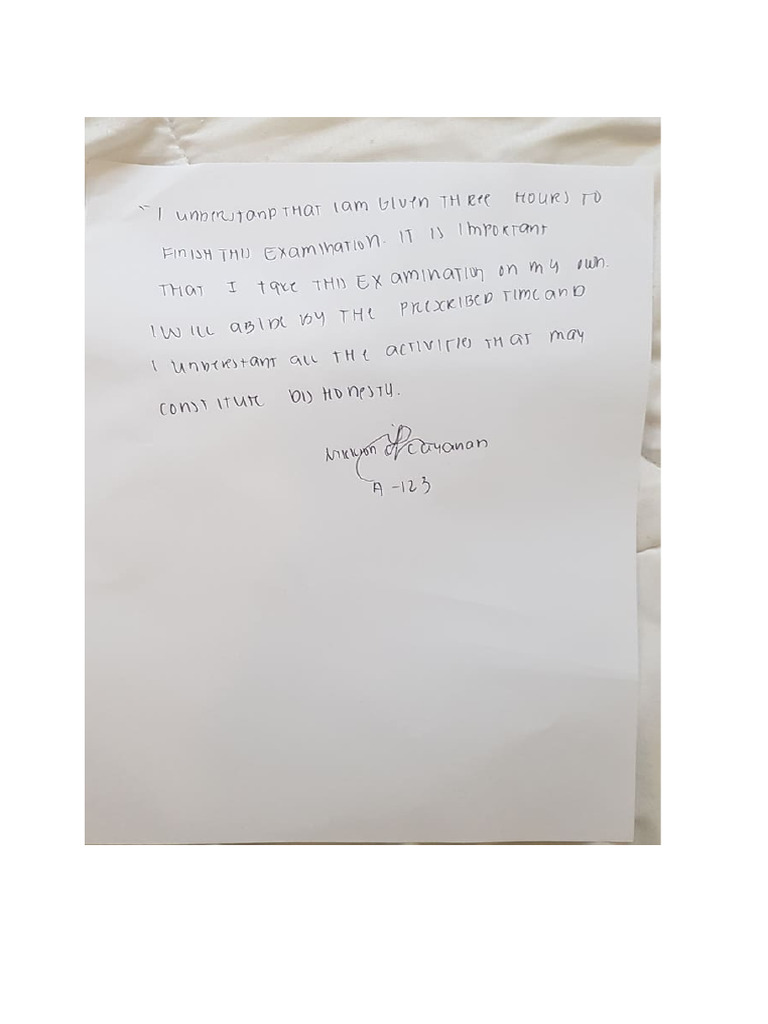 "I UNDERSTAND THAT I am GIVEN THREE HOURS TO
FINISH THIS EXAMINATION. IT IS IMPORTANT
THAT I take THIS EXAMINATION ON MY OWN.
I WILL ABIDE BY THE PRESCRIBED TIME and
I UNDERSTANT ALL THE ACTIVITIES THAT may
CONSTITUTE DISHONESTY.
Cayanan
A-123